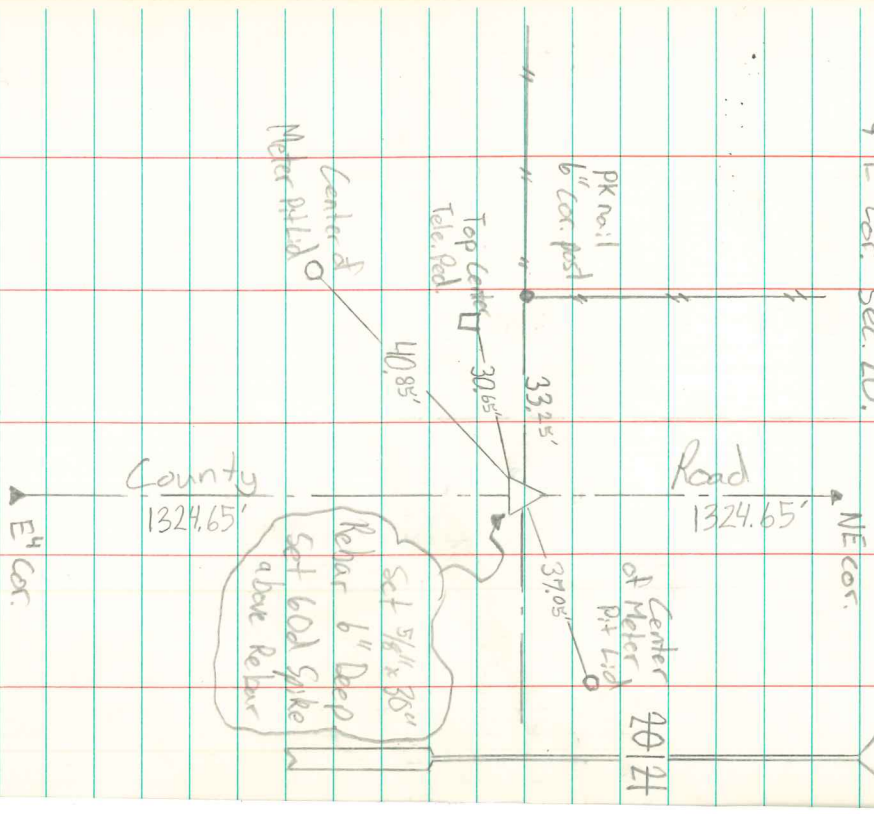 Cor. Sec. 20.
PK nail
6" Cor. post
Top Center
Tele. Ped.
Center of
Meter Pit Lid
33.25'
30.65'
40.85'
County
1324.65'
Road
1324.65'
NE cor.
E4 Cor.
37.05'
Center
of Meter
Pit Lid
Set 5/8" x 30"
Rebar 6" Deep
Set 60d Spike
above Rebar
20|21